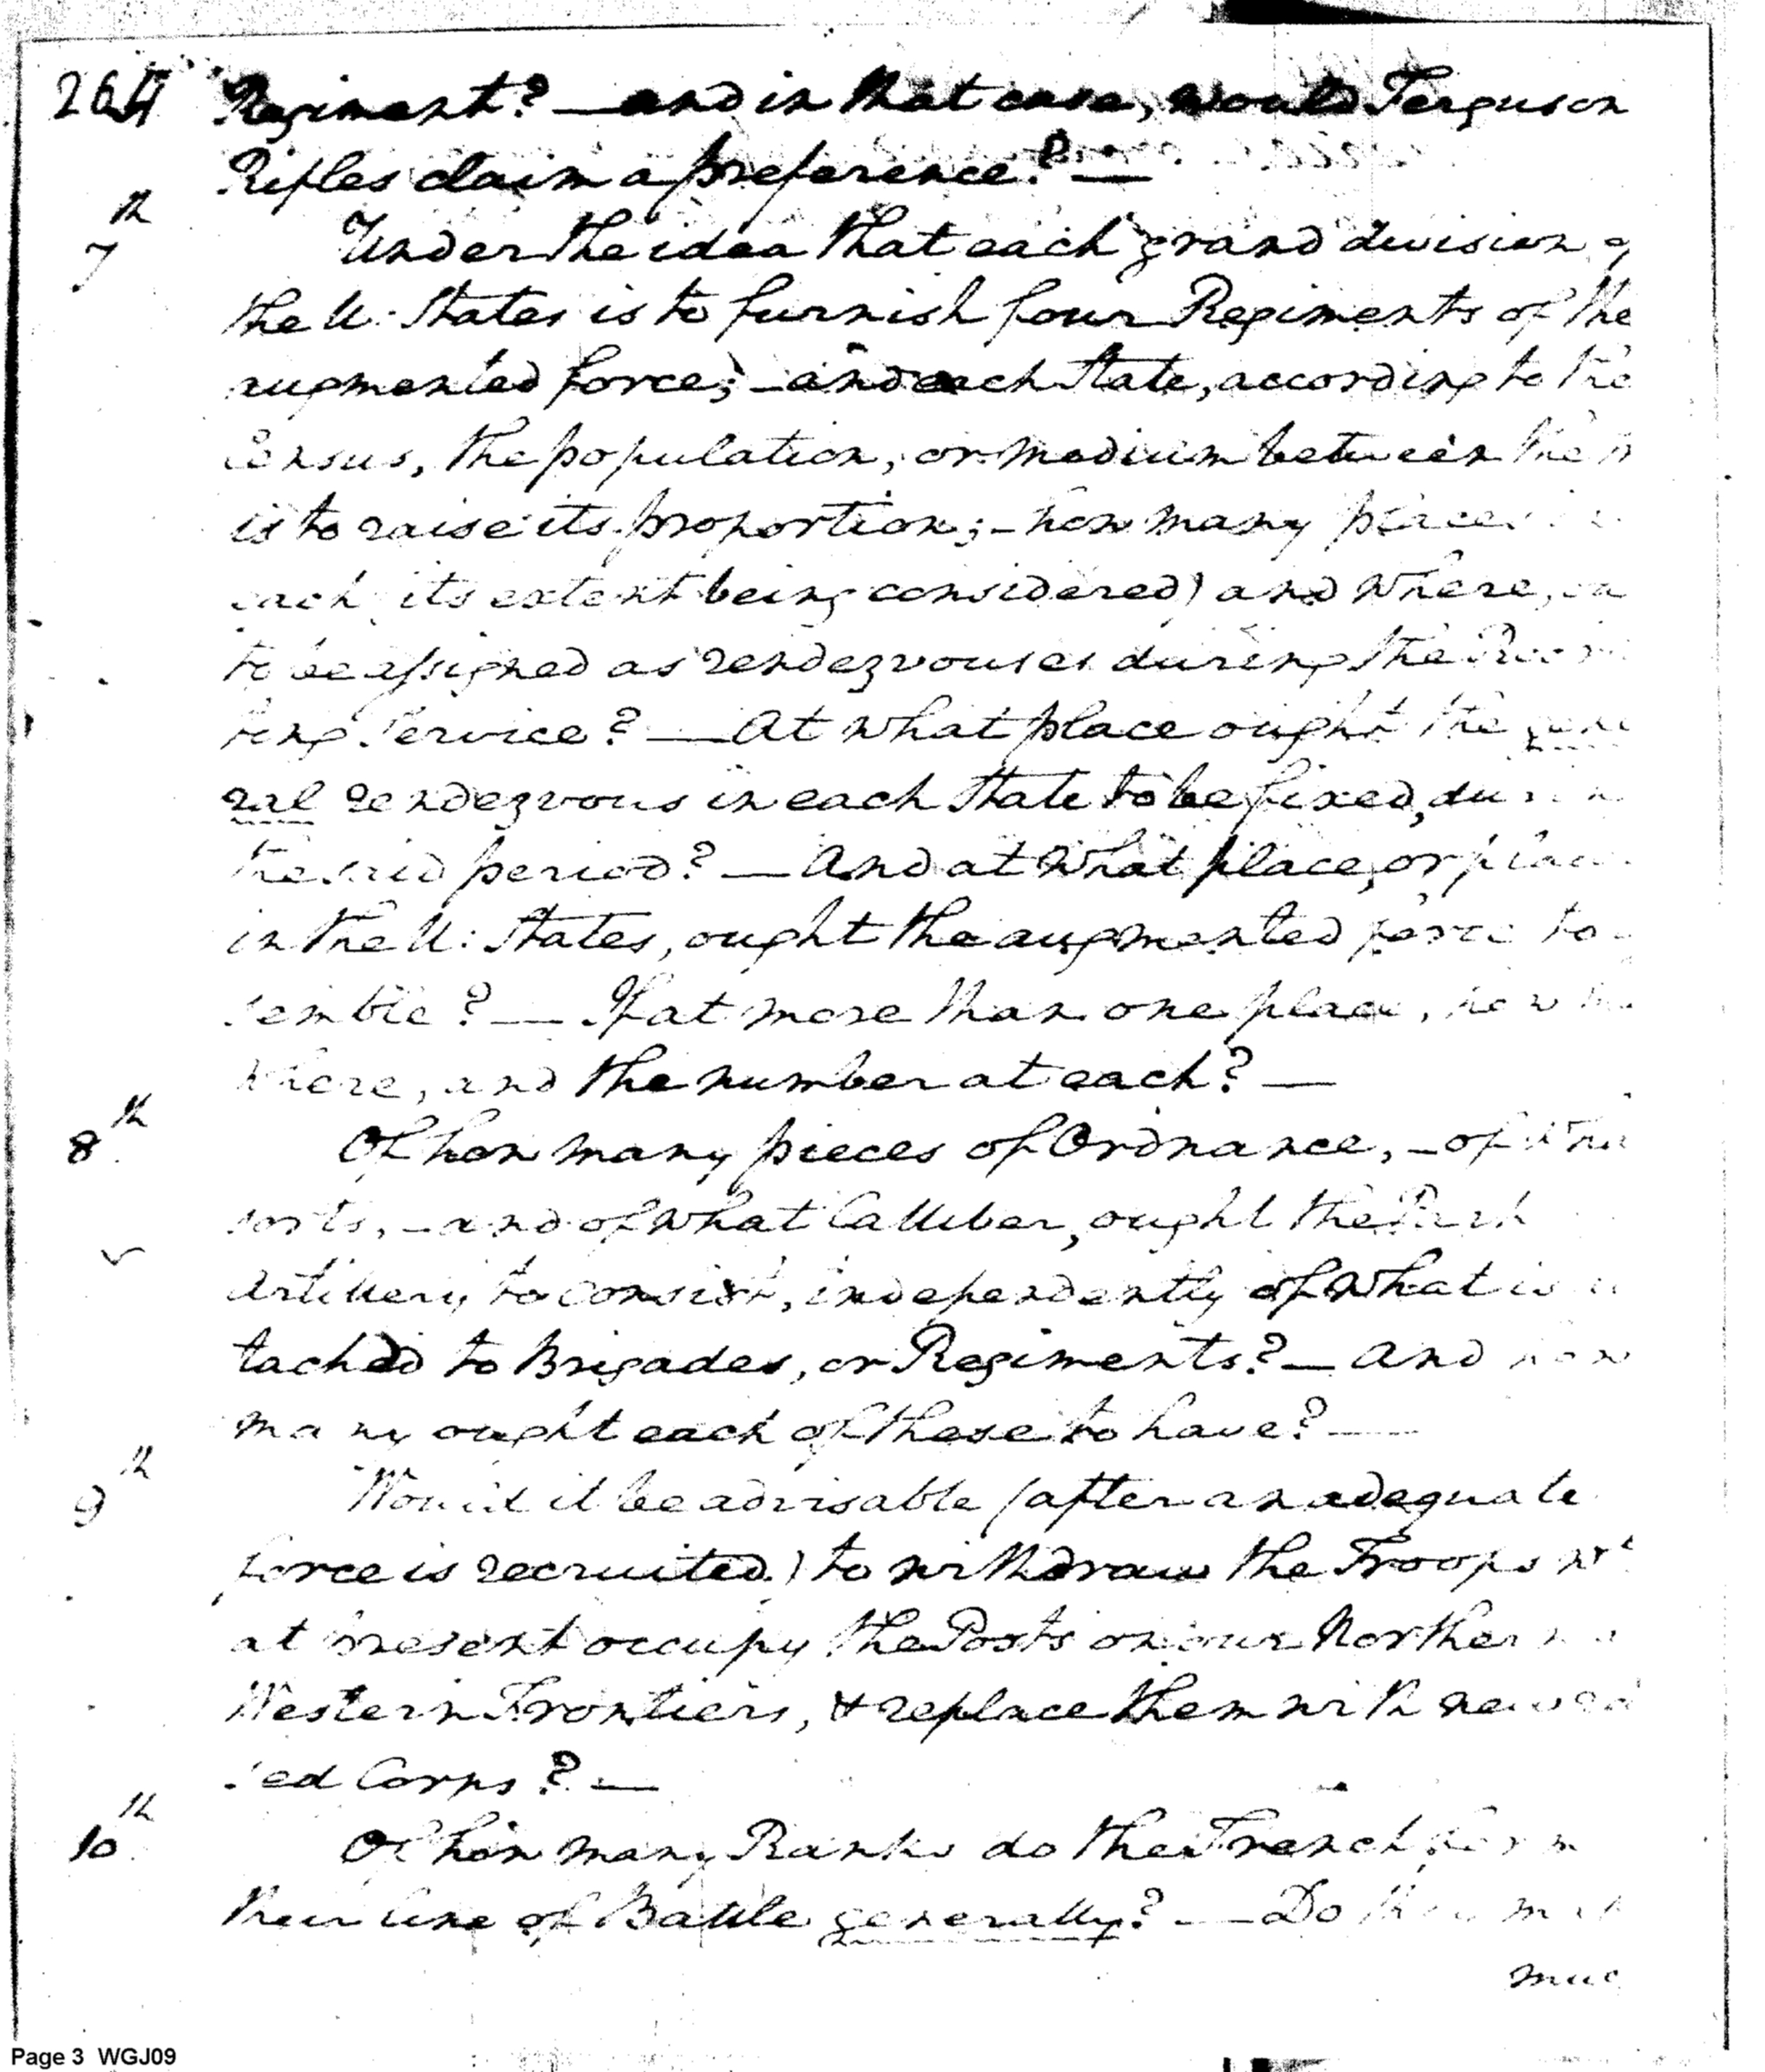 264 Regiment? — and in that case, would Ferguson
Rifles claim a preference? —
7th Under the idea that each grand division of
the U: States is to furnish four Regiments of the
augmented force; – and each State, according to the
Census, the population, or medium between them
is to raise its proportion; – how many places
each its extent being considered) and where,
to be assigned as rendezvouses during the
ting Service? — At what place ought the gene
ral rendezvous in each State to be fixed, durin
the said period? — And at what place, or
in the U: States, ought the augmented force to
semble? — If at more than one place, how
where, and the number at each? —
8th Of how many pieces of Ordnance, – of
sorts, – and of what Calliber, ought the Park
Artillery to consist, independently of what is
tached to Brigades, or Regiments? — And how
many ought each of these to have? —
9th Would it be advisable (after an adequate
force is recruited) to withdraw the Troops wch
at present occupy the Posts on our Northern
Western Frontiers, & replace them with new
sed Corps? —
10th Of how many Ranks do the French form
their line of Battle generally? — Do they
muc
Page 3 WGJ09